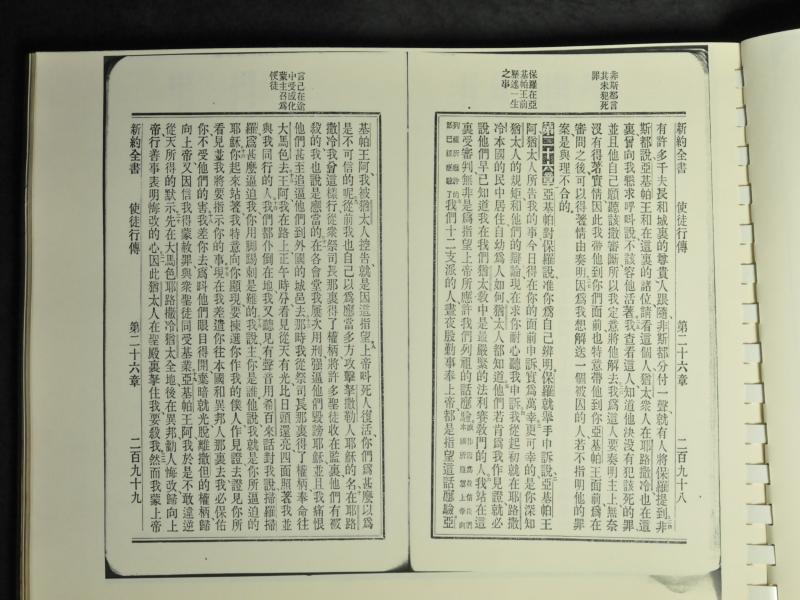 新約全書 使徒行傳 第二十六章 二百九十八
非斯都言
其未犯死
罪
保羅在亞
基帕王前
歷述一生
之事
有許多千夫長和城裏的尊貴人跟隨非斯都分付一聲就有人將保羅提到非
斯都說亞基帕王和在這裏的諸位請看這個人猶太衆人在耶路撒冷也在這
裏曾向我懇求呼呌說不該容他活著我查看這人知道他決沒有犯該死的罪
並且他自己願聽該撒審斷所以我定意將他解去我爲這人要奏明主上無奈
沒有得著實情因此我帶他到你們面前也特意帶他到你亞基帕王面前爲在
審問之後可以得著情由奏明因爲我想解送一個被囚的人若不指明他的罪
案是與理不合的
第二十六章亞基帕對保羅說准你爲自己辨明保羅就舉手申訴說亞基帕王
阿猶太人所告我的事今日得在你的面前申訴實爲萬幸更可幸的是你深知
猶太人的規矩和他們的辯論現在求你耐心聽我申訴我從起初就在耶路撒
冷本國的民中居住自幼爲人如何猶太人都知道他們若肯爲我作見證就必
說他們早已知道我在我們猶太敎中是最嚴緊的法利賽敎門的人我站在這
裏受審判無非是爲指望上帝所應許我們列祖的話應驗
我們十二支派的人晝夜殷勤事奉上帝都是指望這話應驗亞
基帕王阿我被猶太人控告就是因這指望上帝呌死人復活你們爲甚麼以爲
是不可信的呢從前我也自己以爲應當多方攻擊拏撒勒人耶穌的名在耶路
撒冷我曾這樣行從衆祭司長那裏得了權柄將許多聖徒收在監裏他們有被
殺的我也說是應當的在各會堂我屢次用刑强逼他們毀謗耶穌並且我痛恨
他們甚至追逼他們到外國的城邑去那時我從祭司長那裏得了權柄奉命往
大馬色去王阿我在路上正午時分看見從天有光比日頭還亮四面照著我並
與我同行的人我們都仆倒在地我又聽見有聲音用希百來話對我說掃羅掃
羅爲甚麼逼迫我你用脚踢刺是難的我說主你是誰他說我就是你所逼迫的
耶穌你起來站著我特意向你顯現要揀選你作我的僕人作見證去證見你所
看見並我將要指示你的事現在我差遣你往本國和異邦人那裏去我必保佑
你不受他們的害我差你去爲呌他們眼目得開棄暗就光脫離撒但的權柄歸
向上帝又因信我得蒙赦罪與衆聖徒同受基業亞基帕王阿我於是不敢違逆
從天所得的默示先在大馬色耶路撒冷猶太全地後在異邦勸人悔改歸向上
帝行善事表明悔改的心因此猶太人在聖殿裏拏住我要殺我然而我蒙上帝
言己在途
中受感化
蒙主召爲
使徒
新約全書 使徒行傳 第二十六章 二百九十九